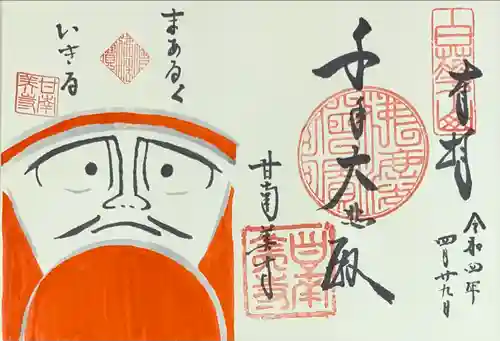 奉拝
令和四年
四月廿九日
千手大悲殿
甘南美寺
まあるく
いきる